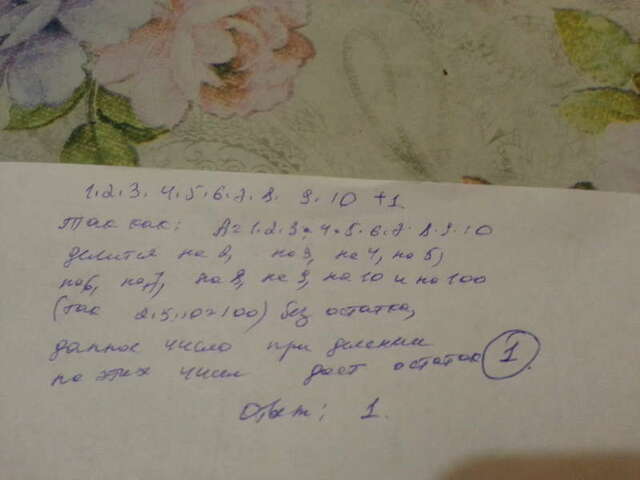 1·2·3·4·5·6·7·8·9·10 +1.
Так как: A=1·2·3·4·5·6·7·8·9·10
делится на 2, на 3, на 4, на 5,
на 6, на 7, на 8, на 9, на 10 и на 100
(так 2·5·10=100) без остатка,
данное число при делении
на этих чисел даст остаток 1.
Ответ: 1.